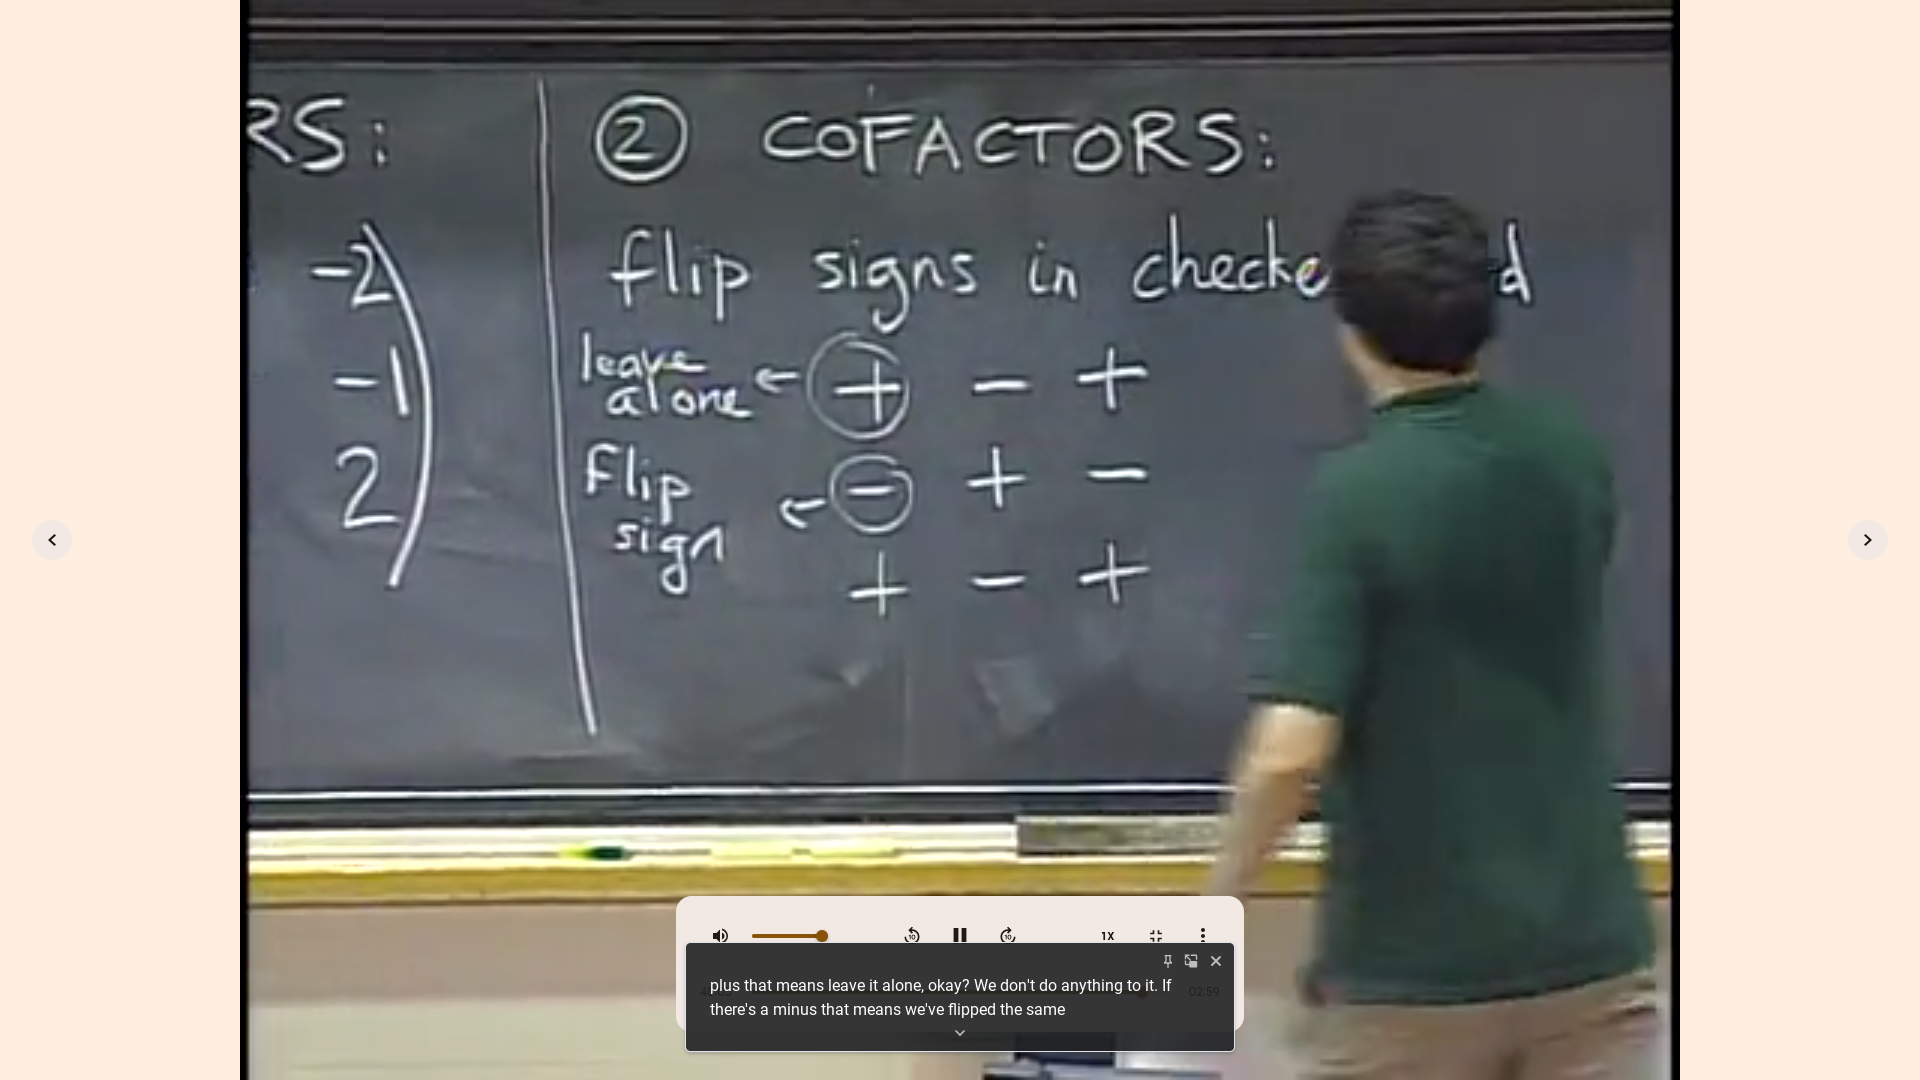 RS:
② COFACTORS:
flip signs in checke d
-2
-1
2
leave alone ← + - +
flip sign ← - + -
+ - +
1X
02:59
plus that means leave it alone, okay? We don't do anything to it. If
there's a minus that means we've flipped the same